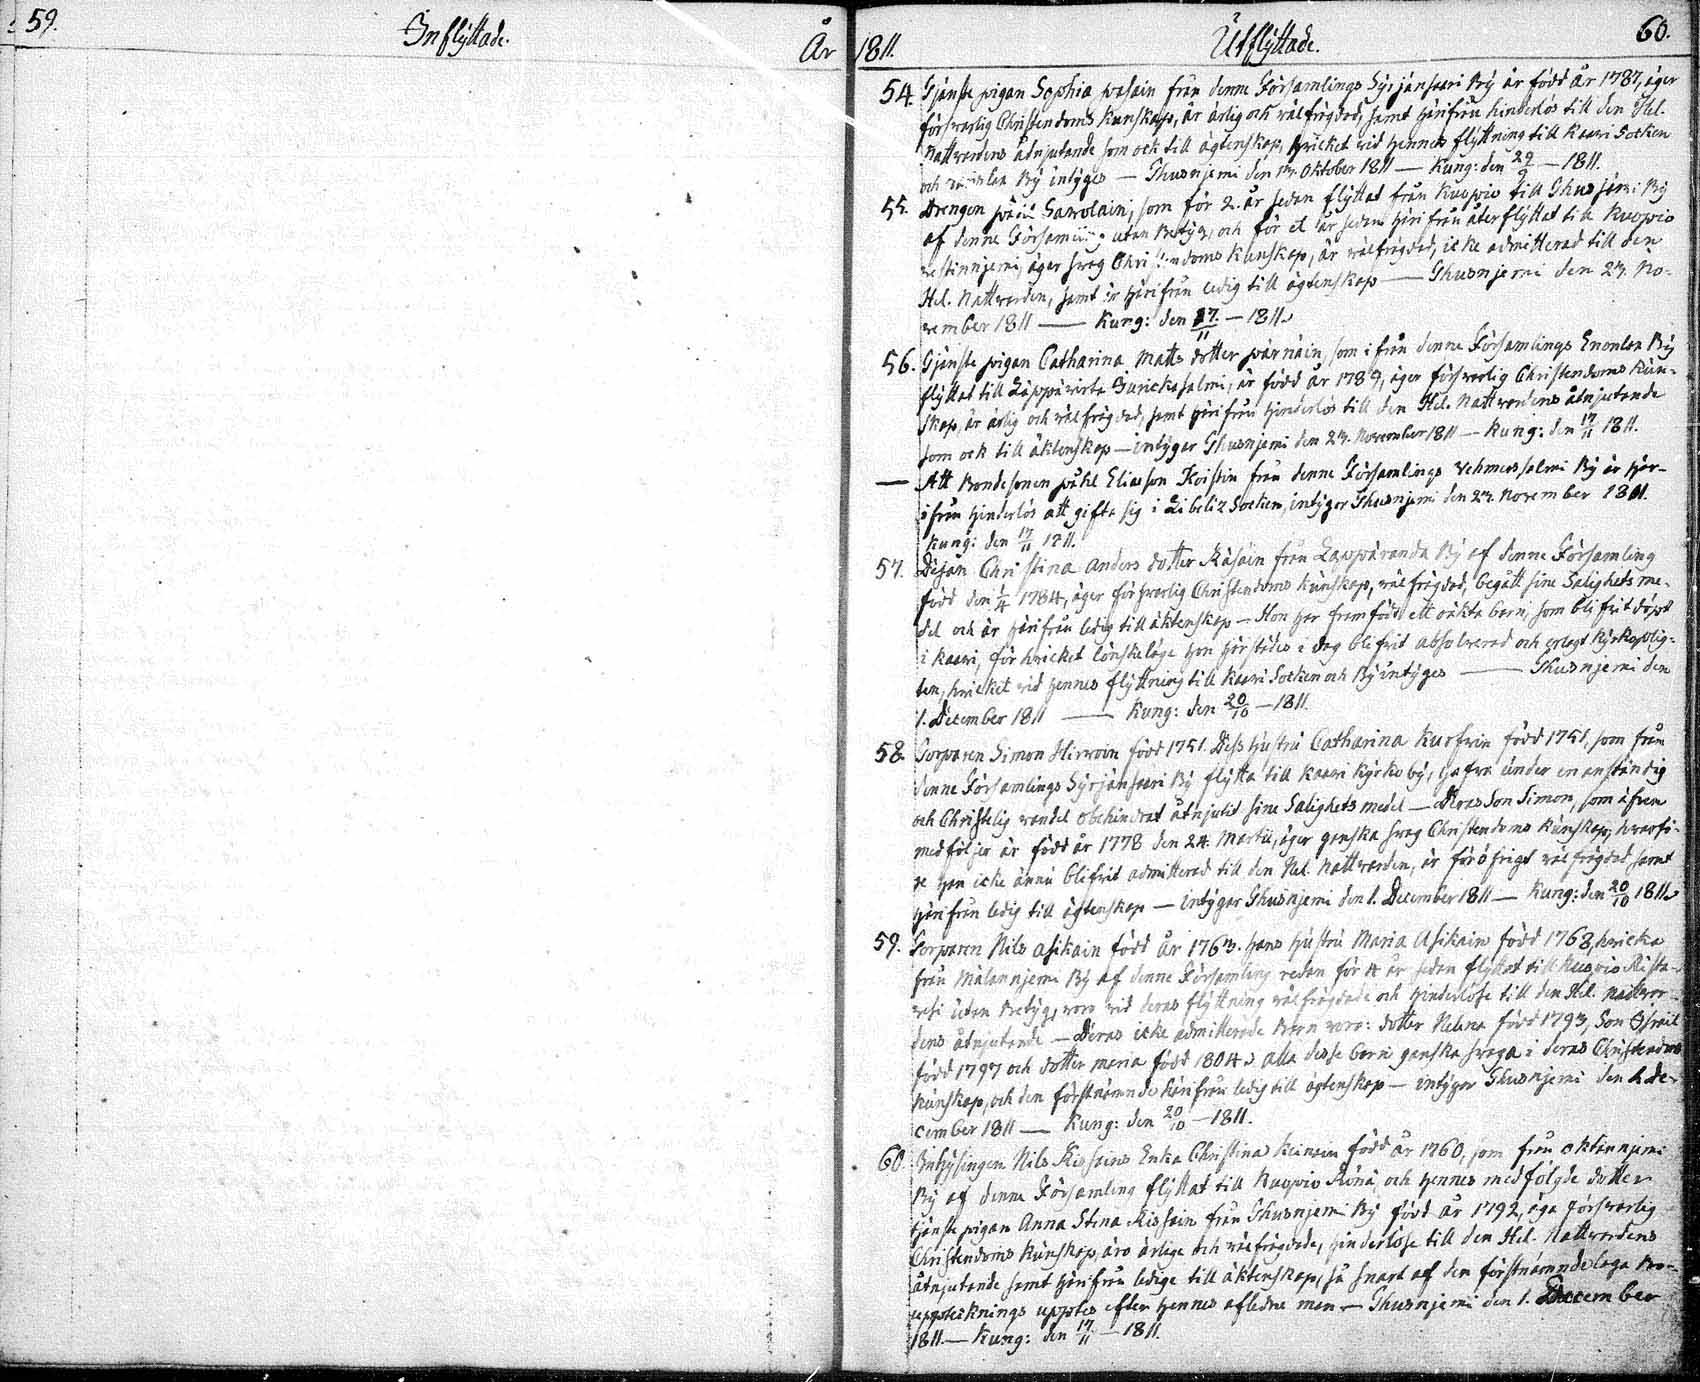 59.
Inflyttade.
År 1811.
Utflyttade.
60.
54. Tjenste pigan Sophia från denne Församlings Syrjänsaari By är född år 1787, äger
försvarlig Christendoms Kunskap, är ärlig och välfrägdad, samt härifrån hinderlös till den Hel.
Nattvardens åtnjutande som ock till ägtenskap, hvilket vid hennes flyttning till Kaavi Socken
och By intyges — Thusnjemi den 13. October 1811 — Kung: den 29/9 — 1811.
55. Drengen Sawolain, som för 2. år sedan flyttat från Kuopio till Thusnjemi By
af denne Församling utan Betyg, och för et år sedan härifrån återflyttat till Kuopio
äger svag Christendoms Kunskap, är välfrägdad, icke admitterad till den
Hel. Nattvarden, samt är härifrån ledig till ägtenskap — Thusnjemi den 23. No-
vember 1811 — Kung: den 17/11 — 1811.
56. Tjenste pigan Catharina Matts dotter Wärnäin, som ifrån denne Församlings Enonlax By
flyttat till Läppävirta är född år 1789, äger försvarlig Christendoms Kun-
skap, är ärlig och välfrägdad, samt härifrån hinderlös till den Hel. Nattvardens åtnjutande
som ock till äktenskap — intygar Thusnjemi den 23. November 1811 — Kung: den 17/11 1811.
— Att Bondesonen Påhl Eliasson Koistin från denne Församlings Vehmersalmi By är här-
ifrån hinderlös att gifta sig i Libeliz Socken, intygar Thusnjemi den 23. November 1811.
Kung: den 17/11 1811.
57. Pigan Christina Anders dotter Räsäin från Lappäranda By af denne Församling
född den 1/4 1784, äger försvarlig Christendoms Kunskap, välfrägdad, begått sine Salighets me-
del och är härifrån ledig till äktenskap — Hon har framfödt ett oäkta barn, som blifvit döpt
i Kaavi, för hvilket lönskeläge hon härstädes i dag blifvit absolverad och erlagt Kyrkoplig-
ten, hvilket vid hennes flyttning till Kaavi Socken och By intyges — Thusnjemi den
1. December 1811 — Kung: den 20/10 — 1811.
58. Torparen Simon Hirvoin född 1751. Dess hustru Catharina född 1751, som från
denne Församlings Syrjänsaari By flytta till Kaavi Kyrko by, hafva under en anständig
och Christelig vandel obehindrat åtnjutit sine Salighets medel — Deras Son Simon, som äfven
medföljer är född år 1778 den 24. Martii, äger ganska svag Christendoms Kunskap, hvarfö-
re han icke ännu blifvit admitterad till den Hel. Nattvarden, är för öfrigt välfrägdad, samt
härifrån ledig till ägtenskap — intygar Thusnjemi den 1. December 1811 — Kung: den 20/10 1811.
59. Torparen Nils Asikain född år 1763. hans hustru Maria Asikain född 1768, hvilka
från Mälannjemi By af denne Församling redan för 4 år sedan flyttat till Kuopio Rista-
vesi utan Betyg, voro vid deras flyttning välfrägdade och hinderlöse till den Hel. Nattvar-
dens åtnjutande — Deras icke admitterade Barn voro: dotter Helena född 1793, Son Israel
född 1797 och dotter Maria född 1804. alla desse barn ganska svaga i deras Christendoms
Kunskap, och den förstnämnde härifrån ledig till ägtenskap — intygar Thusnjemi den 1. De-
cember 1811 — Kung: den 20/10 — 1811.
60. Inhysingen Nils Kissains Enka Christina Keinain född år 1760, som från
By af denne Församling flyttat till Kuopio och hennes medföljde dotter
tjenste pigan Anna Stina Kissain från Thusnjemi By född år 1792, äga försvarlig
Christendoms Kunskap, äro ärlige och välfrägdade, hinderlöse till den Hel. Nattvardens
åtnjutande samt härifrån ledige till äktenskap, så snart af den förstnämnde laga Bo-
uppteknings uppvisas efter hennes aflidne man — Thusnjemi den 1. December
1811 — Kung: den 17/11 — 1811.